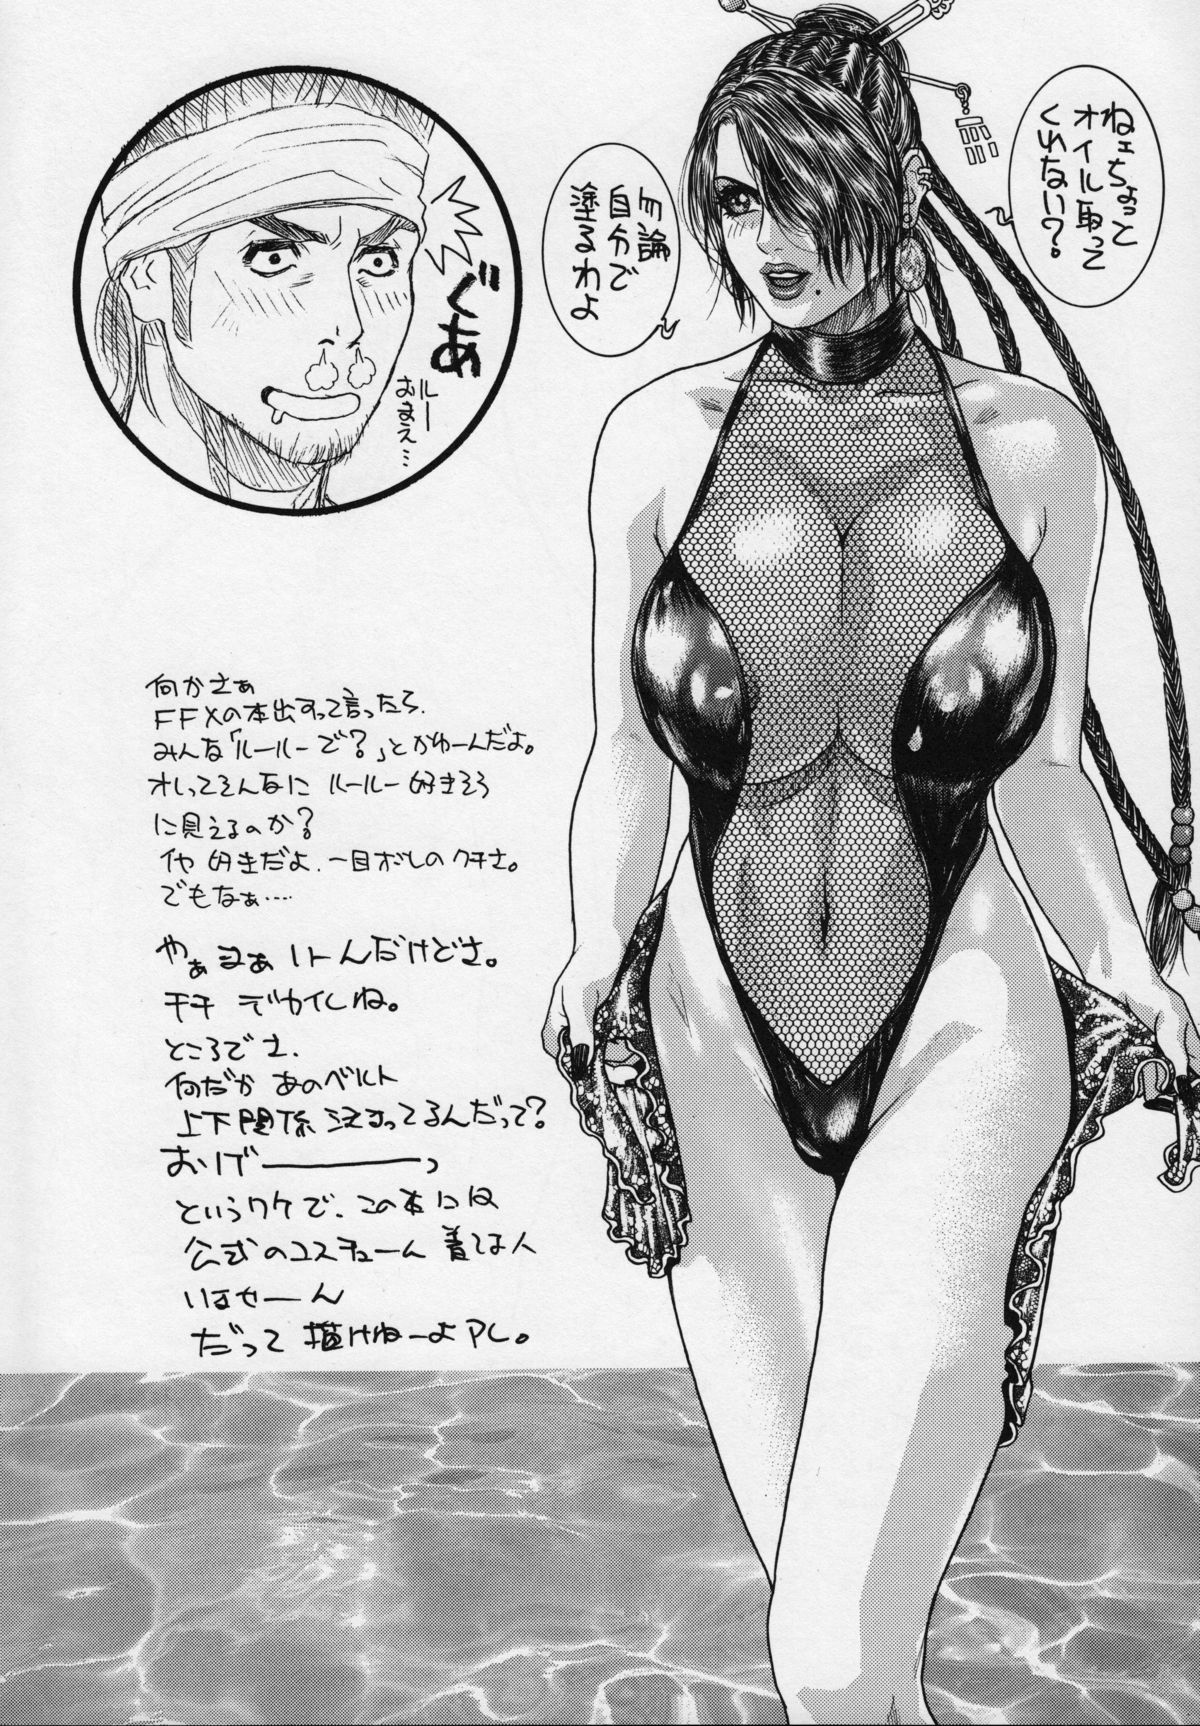 ねェちょっと
オイル取って
くれない?
勿論
自分で
塗るわよ
ぐあ
ルー
おまえ…
何かさぁ
FFXの本出すって言ったら、
みんな「ルールーで?」とかゆーんだよ。
オレってそんなに ルールー好きそう
に見えるのか?
イヤ 好きだよ、一目ボレのクチさ。
でもなぁ……
やぁまぁ いーんだけどさ。
チチ デカイしね。
ところでさ、
何だか あのベルト
上下関係 決まってるんだって?
おりげーーっ
というワケで、この本には
公式のコスチューム 着てる人
いませーん
だって 描けねーよアレ。